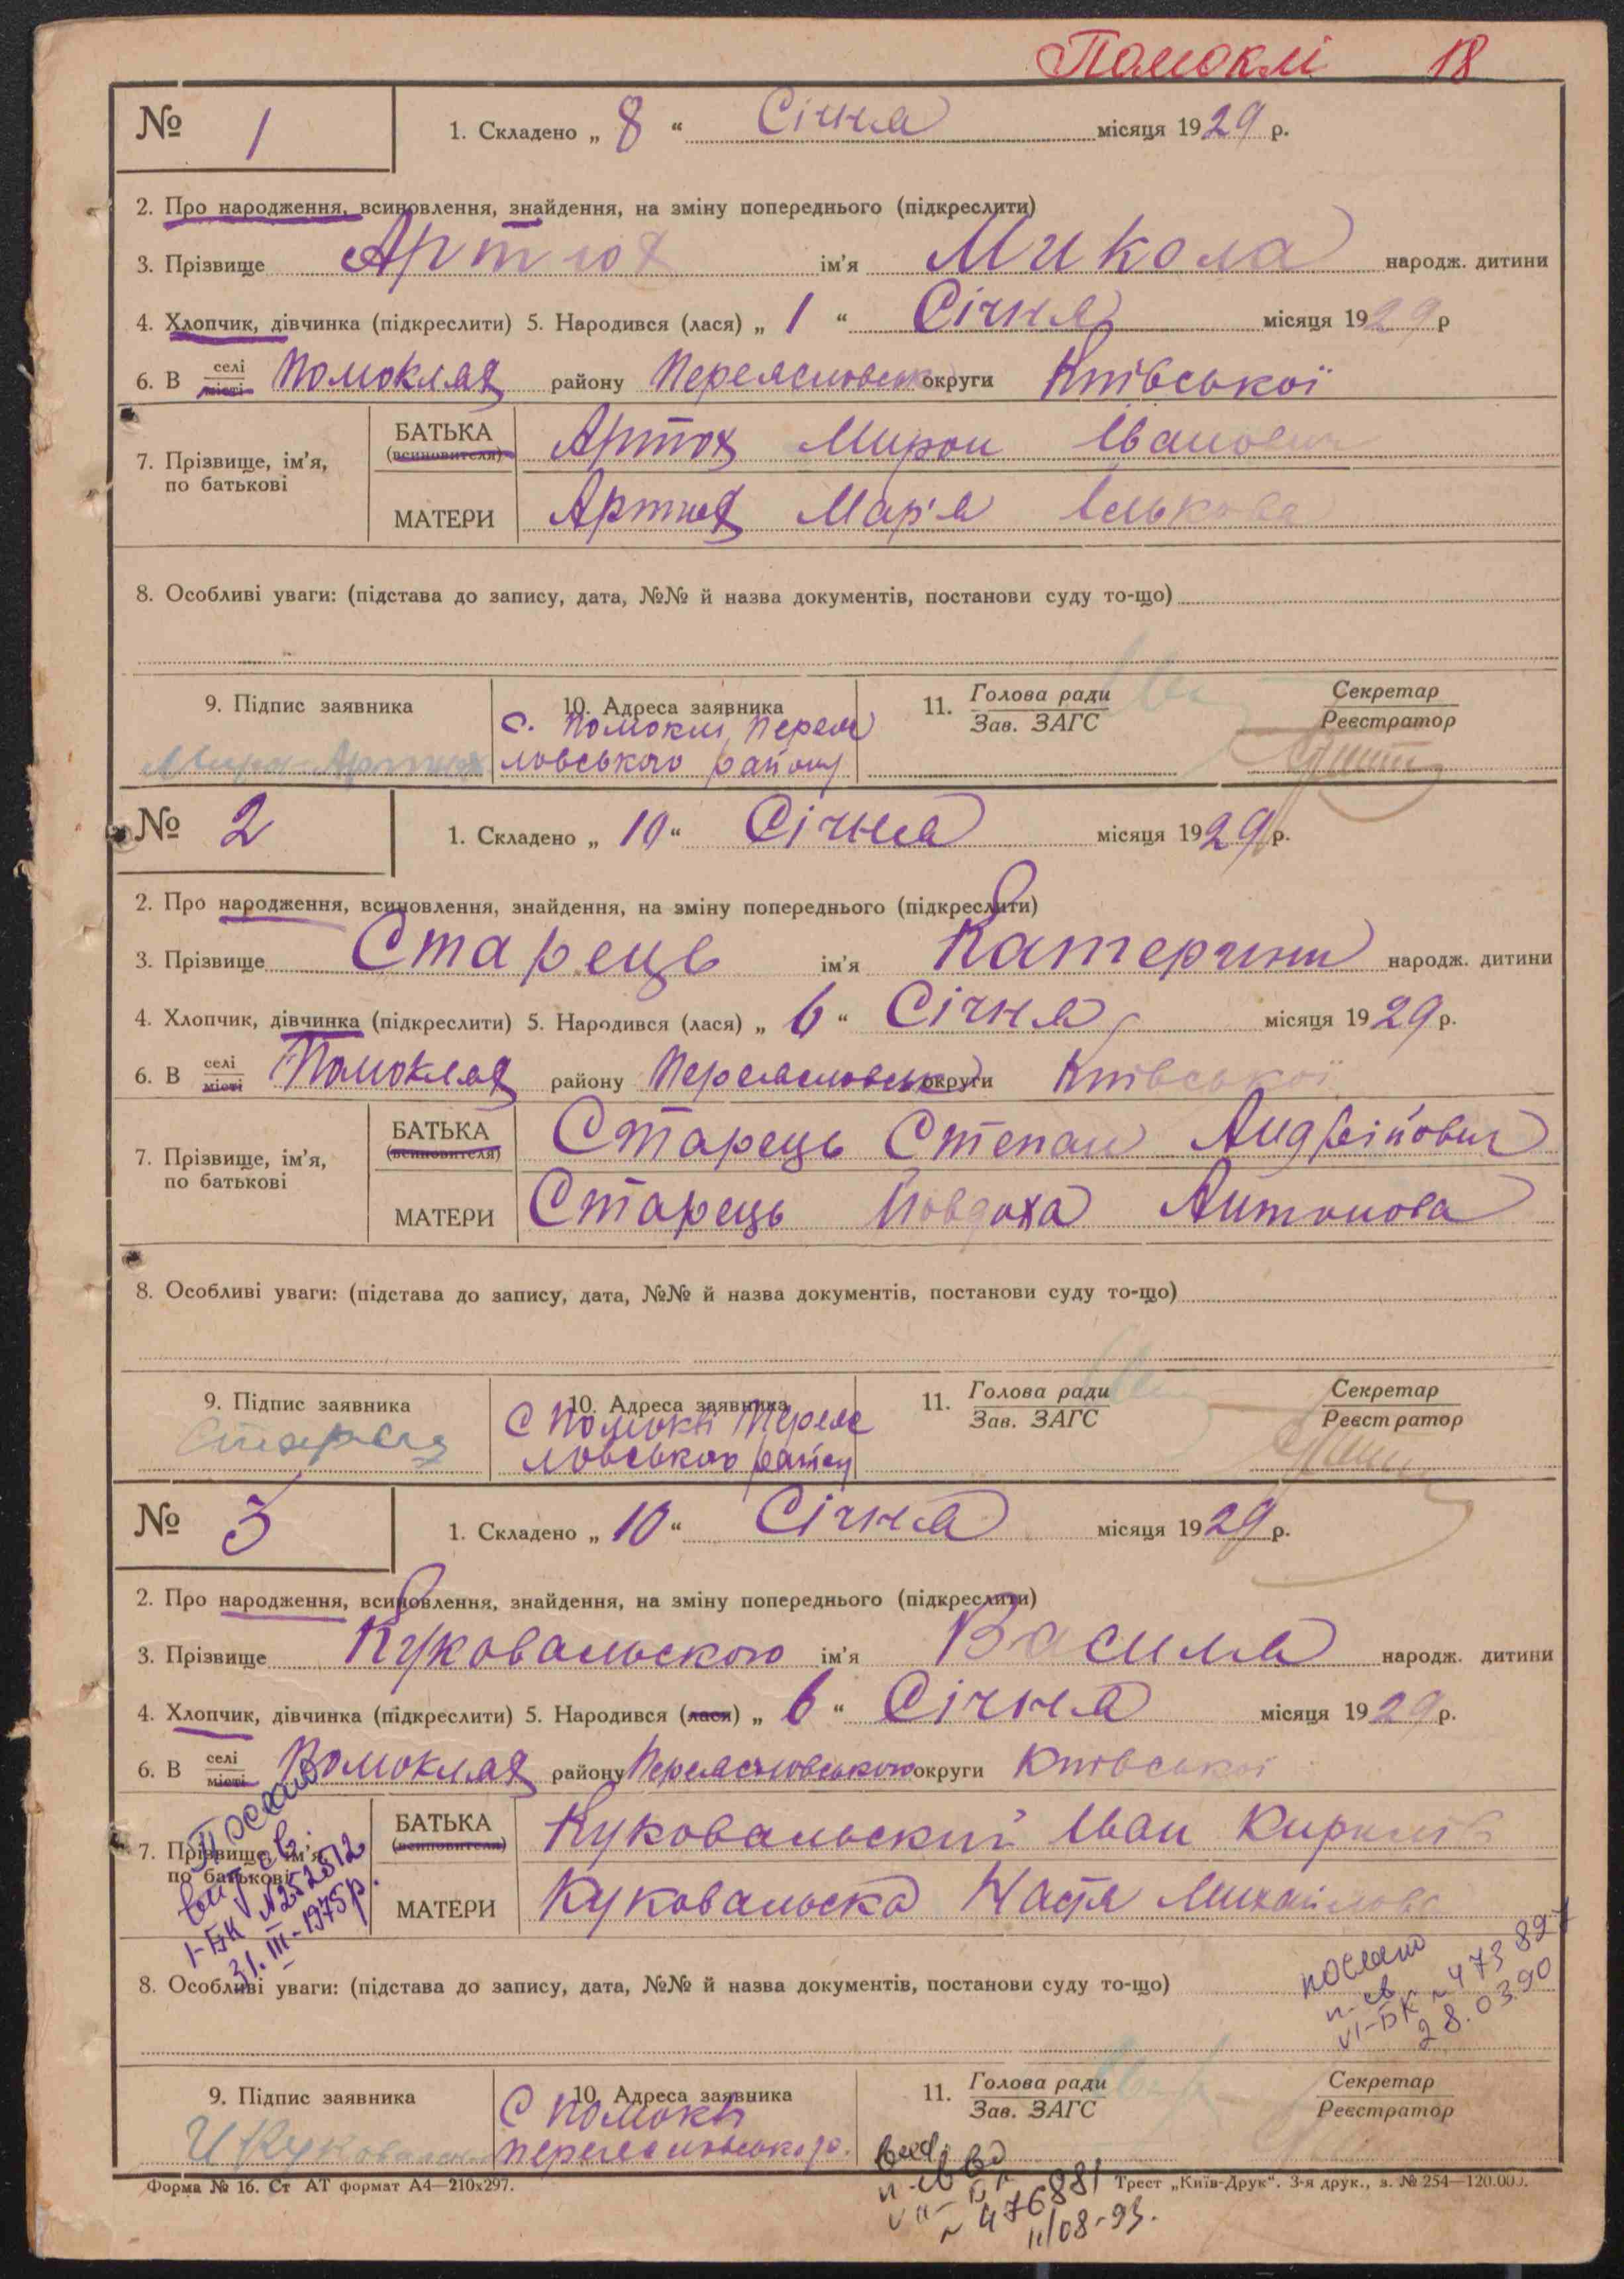 Помоклі 18
№ 1 1. Складено „ 8 “ Січня місяця 1929 р.
2. Про народження, всиновлення, знайдення, на зміну попереднього (підкреслити)
3. Прізвище Артюх ім'я Микола народж. дитини
4. Хлопчик, дівчинка (підкреслити) 5. Народився (лася) „ 1 “ Січня місяця 1929 р
6. В селі місті Помоклях району Переяславськ округи Київської
7. Прізвище, ім'я, по батькові
БАТЬКА (всиновителя) Артюх Мирон Іванович
МАТЕРИ Артюх Мар'я Ількова
8. Особливі уваги: (підстава до запису, дата, №№ й назва документів, постанови суду то-що)
9. Підпис заявника 10. Адреса заявника 11. Голова ради Секретар
Зав. ЗАГС Реєстратор
с. Помоклі, Переяс
Мирон Артюх ловського району
№ 2 1. Складено „ 10 “ Січня місяця 1929 р.
2. Про народження, всиновлення, знайдення, на зміну попереднього (підкреслити)
3. Прізвище Старець ім'я Катерини народж. дитини
4. Хлопчик, дівчинка (підкреслити) 5. Народився (лася) „ 6 “ Січня місяця 1929 р.
6. В селі місті Помоклях району Переяславськ округи Київської
7. Прізвище, ім'я, по батькові
БАТЬКА (всиновителя) Старець Степан Андрійович
МАТЕРИ Старець Йовдоха Антонова
8. Особливі уваги: (підстава до запису, дата, №№ й назва документів, постанови суду то-що)
9. Підпис заявника 10. Адреса заявника 11. Голова ради Секретар
Зав. ЗАГС Реєстратор
с Помоклі Переяс
ловського району
№ 3 1. Складено „ 10 “ Січня місяця 1929 р.
2. Про народження, всиновлення, знайдення, на зміну попереднього (підкреслити)
3. Прізвище Куковальского ім'я Василя народж. дитини
4. Хлопчик, дівчинка (підкреслити) 5. Народився (лася) „ 6 “ Січня місяця 1929 р.
6. В селі місті Помоклях району Переяславського округи Київської
7. Прізвище, ім'я, по батькові
БАТЬКА (всиновителя) Куковальский Іван Кирилів
МАТЕРИ Куковальска Настя Михайлова
Послано
I-БК №252512
31.III-1975р.
8. Особливі уваги: (підстава до запису, дата, №№ й назва документів, постанови суду то-що)
послано
п. св
VI-БК № 473897
28.03.90
9. Підпис заявника 10. Адреса заявника 11. Голова ради Секретар
Зав. ЗАГС Реєстратор
С Помоклі
И Куковальский Переясловського р.
п. св
№ 476881
11/08-93.
Форма № 16. Ст АТ формат А4—210х297. Трест „Київ-Друк“. 3-я друк., з. № 254—120.000.